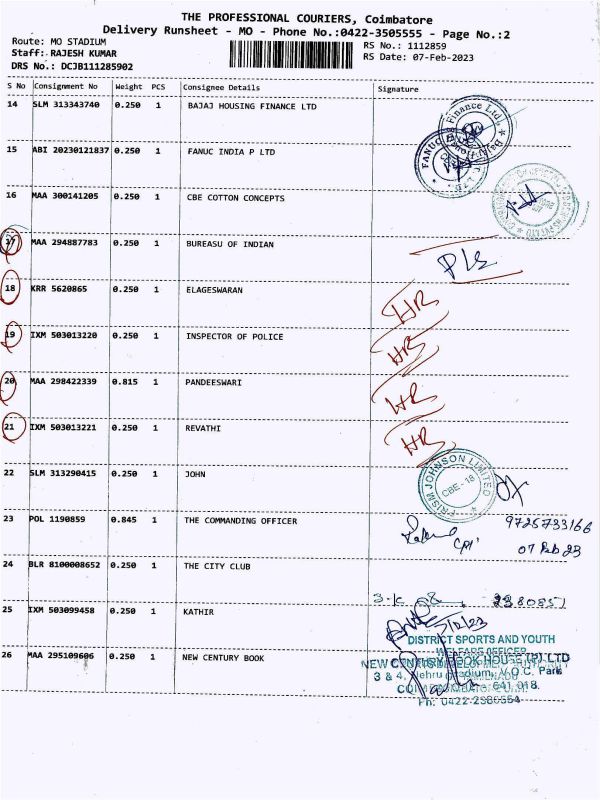 THE PROFESSIONAL COURIERS, Coimbatore
Delivery Runsheet - MO - Phone No.:0422-3505555 - Page No.:2
Route: MO STADIUM
RS No.: 1112859
Staff: RAJESH KUMAR
RS Date: 07-Feb-2023
DRS No.: DCJB111285902
S No Consignment No Weight PCS Consignee Details Signature
14 SLM 313343740 0.250 1 BAJAJ HOUSING FINANCE LTD
15 ABI 20230121837 0.250 1 FANUC INDIA P LTD
16 MAA 300141205 0.250 1 CBE COTTON CONCEPTS
17 MAA 294887783 0.250 1 BUREASU OF INDIAN
18 KRR 5620865 0.250 1 ELAGESWARAN HR
19 IXM 503013220 0.250 1 INSPECTOR OF POLICE HR
20 MAA 298422339 0.815 1 PANDEESWARI HR
21 IXM 503013221 0.250 1 REVATHI HR
22 SLM 313290415 0.250 1 JOHN
PRISM JOHNSON LIMITED
CBE - 18
23 POL 1190859 0.845 1 THE COMMANDING OFFICER
9725733166
07 Feb 23
24 BLR 8100008652 0.250 1 THE CITY CLUB
25 IXM 503099458 0.250 1 KATHIR
DISTRICT SPORTS AND YOUTH
WELFARE OFFICER
26 MAA 295109606 0.250 1 NEW CENTURY BOOK
NEW CENTURY BOOK HOUSE (P) LTD
3 & 4, Nehru Stadium, V.O.C. Park
641 018.
Ph: 0422-2380554